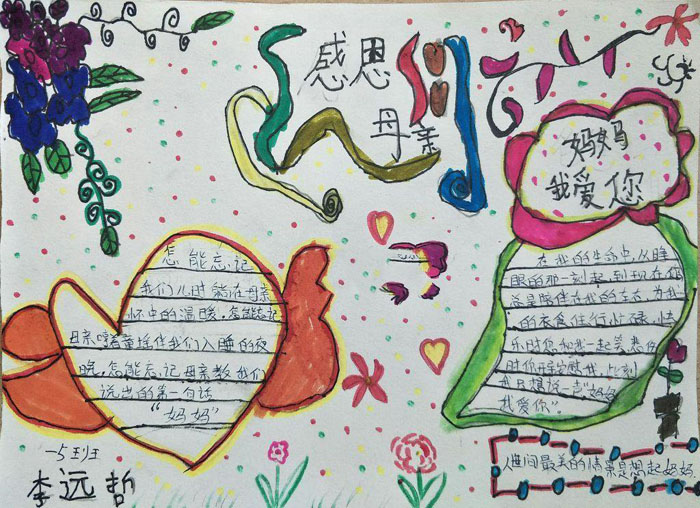 感恩
母亲
妈妈
我爱您
怎能忘记
我们儿时躺在母亲
怀中的温暖,怎能忘记
母亲唱着童谣伴我们入睡的夜
晚,怎能忘记母亲教我们
说出的第一句话
“妈妈”
在我的生命中,从睁
眼的那一刻起,到现在,您
总是陪伴在我的左右,为我
的衣食住行忙碌,快
乐时您和我一起笑,悲伤
时你
我,此刻
我只想说一声“妈妈
我爱你”。
人世间最美的情景是想起妈妈
一5班
李远哲